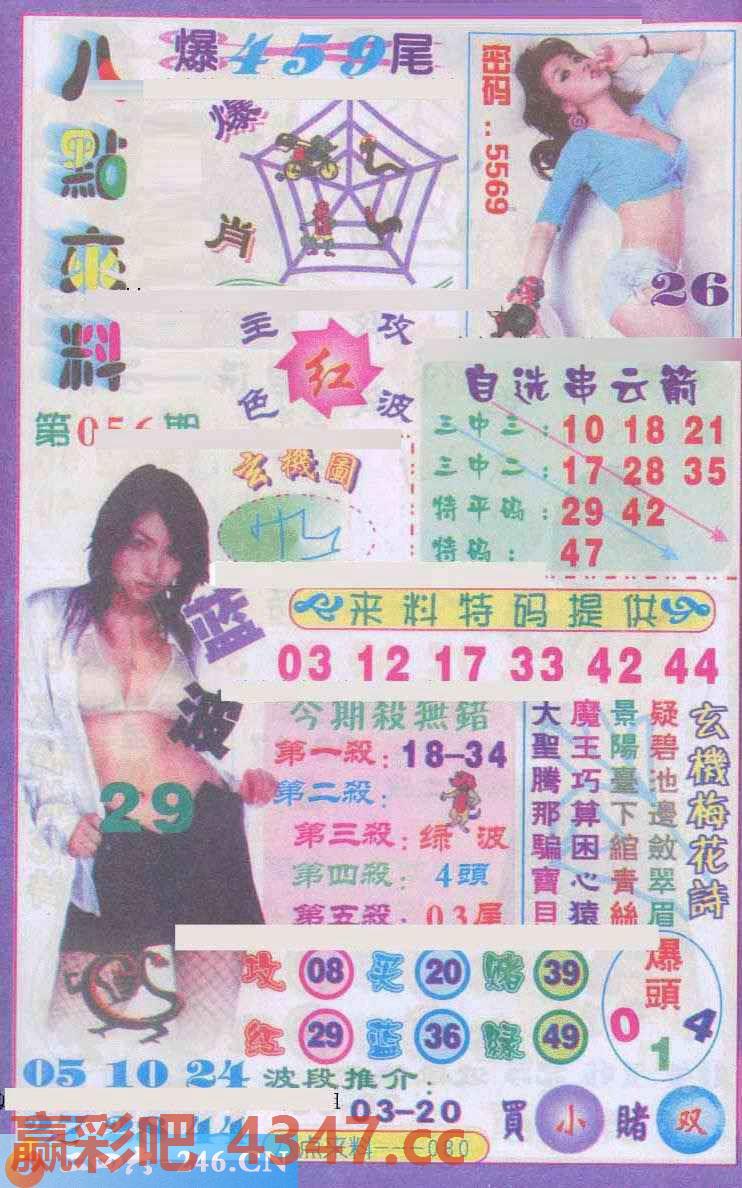 八點來料
爆459尾
爆肖
密码..5569
26
主攻
红
色波
第056期
玄機圖
自选串云箭
三中三:10 18 21
三中二:17 28 35
特平码:29 42
特码:47
来料特码提供
03 12 17 33 42 44
蓝波
29
今期殺無錯
第一殺:18-34
第二殺:
第三殺:绿波
第四殺:4頭
第五殺:03尾
玄機梅花詩
疑碧池邊斂翠眉
景陽臺下綰青絲
魔王巧算困心猿
大聖騰那騙寶目
攻 08 买 20 赌 39
红 29 蓝 36 绿 49
爆頭
0 1 4
05 10 24
波段推介:
03-20
買小賭双
赢彩吧.4347.cc
246.CN